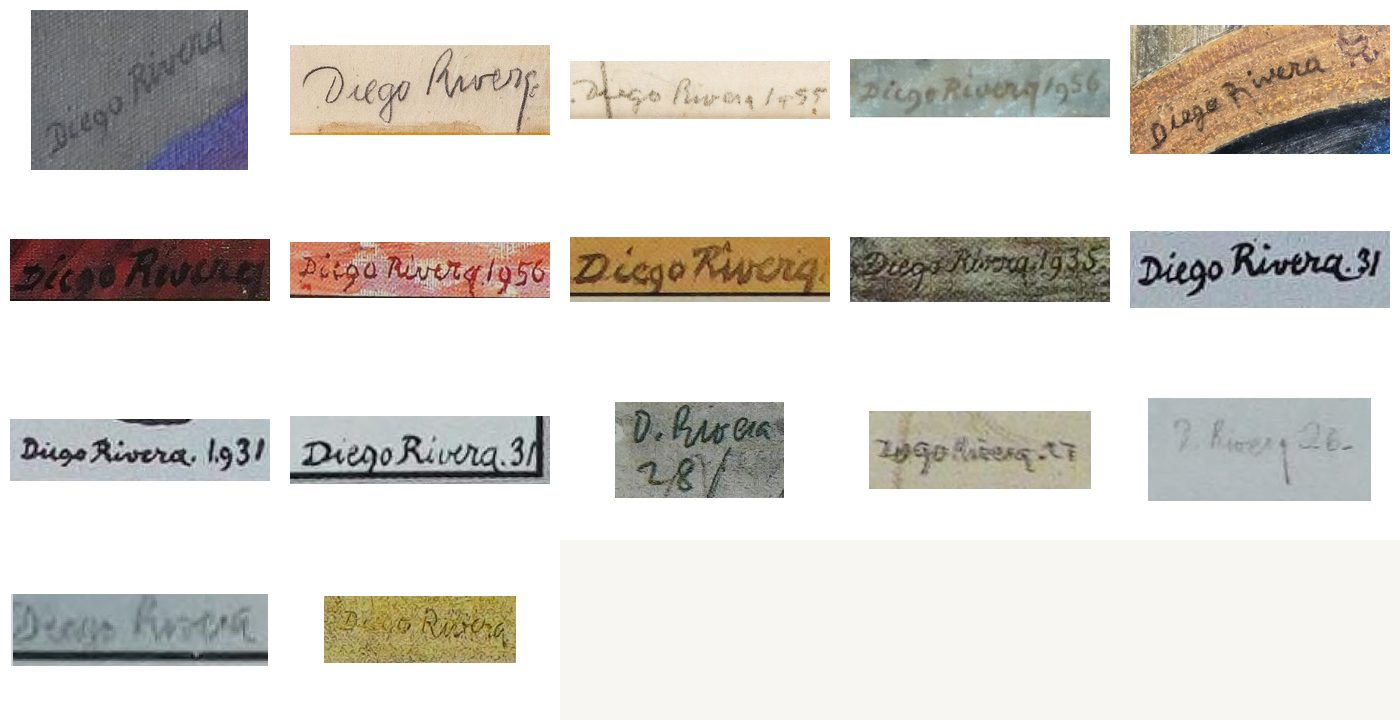 Diego Rivera
Diego Rivera
Diego Rivera 1955
Diego Rivera 1956
Diego Rivera
Diego Rivera
Diego Rivera.1956
Diego Rivera.
Diego Rivera.1935.
Diego Rivera.31
Diego Rivera. 1.931
Diego Rivera.31
D. Rivera
28/
Diego Rivera. 27
D. Rivera 26-
Diego Rivera
Diego Rivera